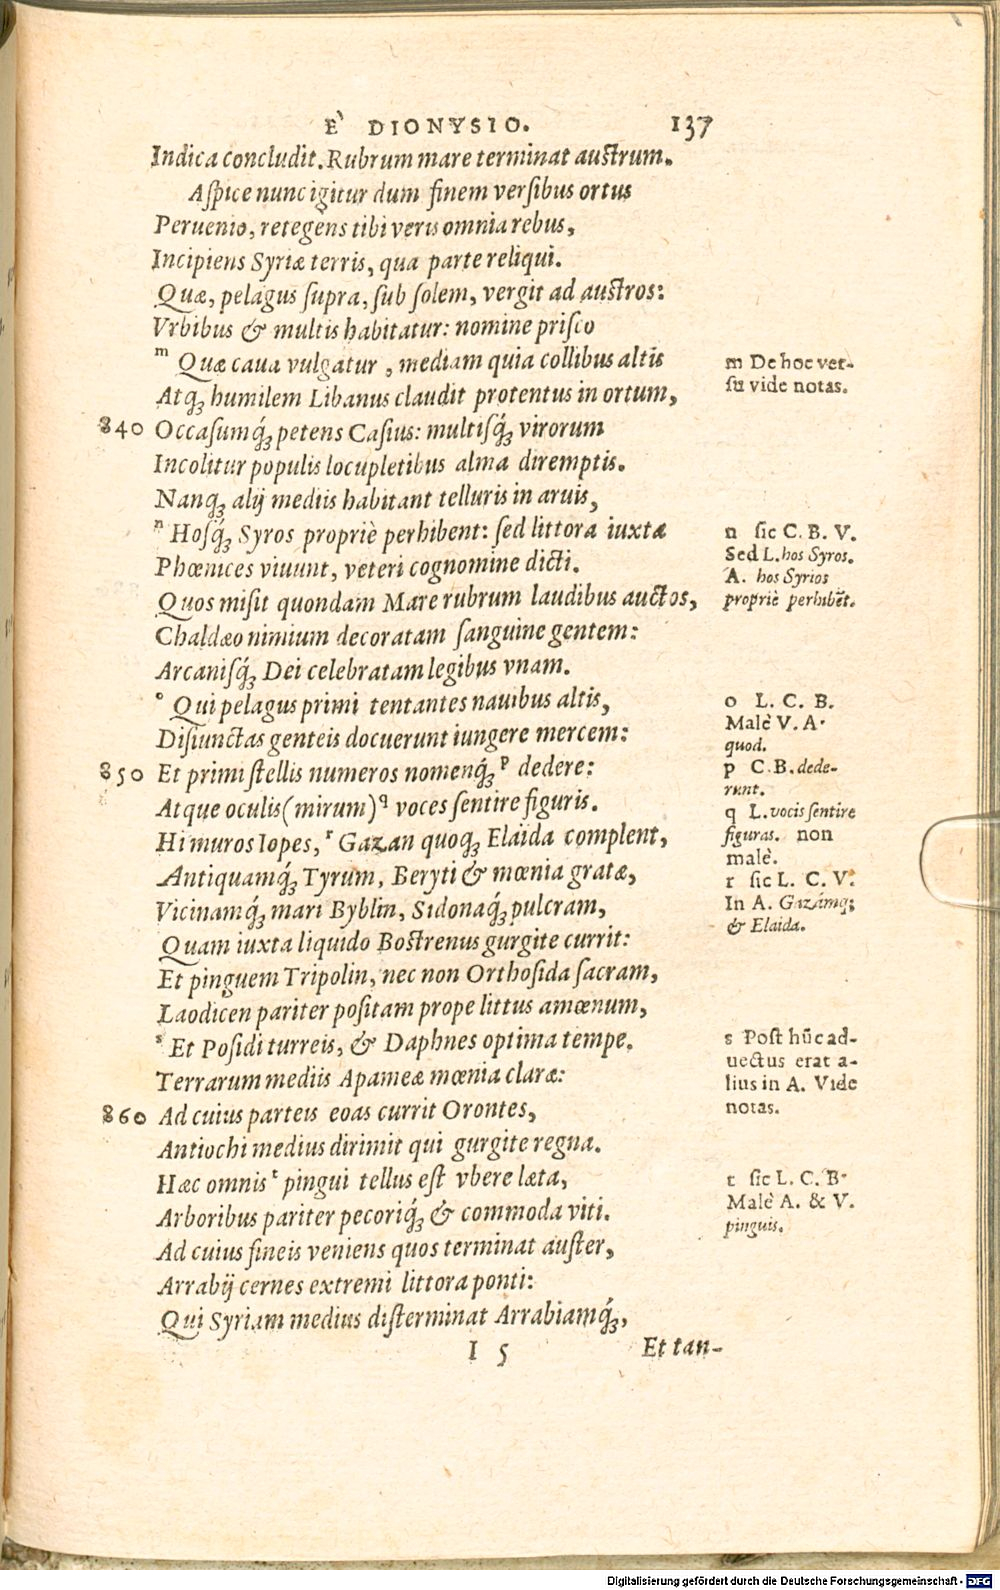 È DIONYSIO. 137
Indica concludit. Rubrum mare terminat austrum.
Aſpice nunc igitur dum finem verſibus ortus
Peruenio, retegens tibi veris omnia rebus,
Incipiens Syriæ terris, qua parte reliqui.
Quæ, pelagus ſupra, ſub ſolem, vergit ad austros:
Vrbibus & multis habitatur: nomine priſco
m Quæ caua vulgatur, mediam quia collibus altis
m De hoc ver-
ſu vide notas.
Atq; humilem Libanus claudit protentus in ortum,
840 Occaſumq́; petens Caſius: multiſq́; virorum
Incolitur populis locupletibus alma diremptis.
Nanq; alij mediis habitant telluris in aruis,
n Hoſq́; Syros propriè perhibent: ſed littora iuxta
n ſic C. B. V.
Sed L. hos Syros.
A. hos Syrios
propriè perhibẽt.
Phœnices viuunt, veteri cognomine dicti.
Quos miſit quondam Mare rubrum laudibus auctos,
Chaldæo nimium decoratam ſanguine gentem:
Arcaniſq́; Dei celebratam legibus vnam.
o Qui pelagus primi tentantes nauibus altis,
o L. C. B.
Malè V. A.
quod.
Diſiunctas genteis docuerunt iungere mercem:
850 Et primi ſtellis numeros nomenq́; p dedere:
p C. B. dede-
runt.
Atque oculis (mirum) q voces ſentire figuris.
q L. vocis ſentire
figuras. non
malè.
Hi muros Iopes, r Gazan quoq; Elaida complent,
Antiquamq́; Tyrum, Beryti & mœnia gratæ,
r ſic L. C. V.
In A. Gazámq;
& Elaida.
Vicinamq́; mari Byblin, Sidonaq́; pulcram,
Quam iuxta liquido Bostrenus gurgite currit:
Et pinguem Tripolin, nec non Orthoſida ſacram,
Laodicen pariter poſitam prope littus amœnum,
s Et Poſidi turreis, & Daphnes optima tempe.
s Post hũc ad-
uectus erat a-
lius in A. Vide
notas.
Terrarum mediis Apameæ mœnia claræ:
860 Ad cuius parteis eoas currit Orontes,
Antiochi medius dirimit qui gurgite regna.
Hæc omnis t pingui tellus est vbere læta,
t ſic L. C. B.
Malè A. & V.
pinguis.
Arboribus pariter pecoriq́; & commoda viti.
Ad cuius fineis veniens quos terminat auſter,
Arrabij cernes extremi littora ponti:
Qui Syriam medius diſterminat Arrabiamq́;,
I 5 Et tan-
Digitalisierung gefördert durch die Deutsche Forschungsgemeinschaft - DFG